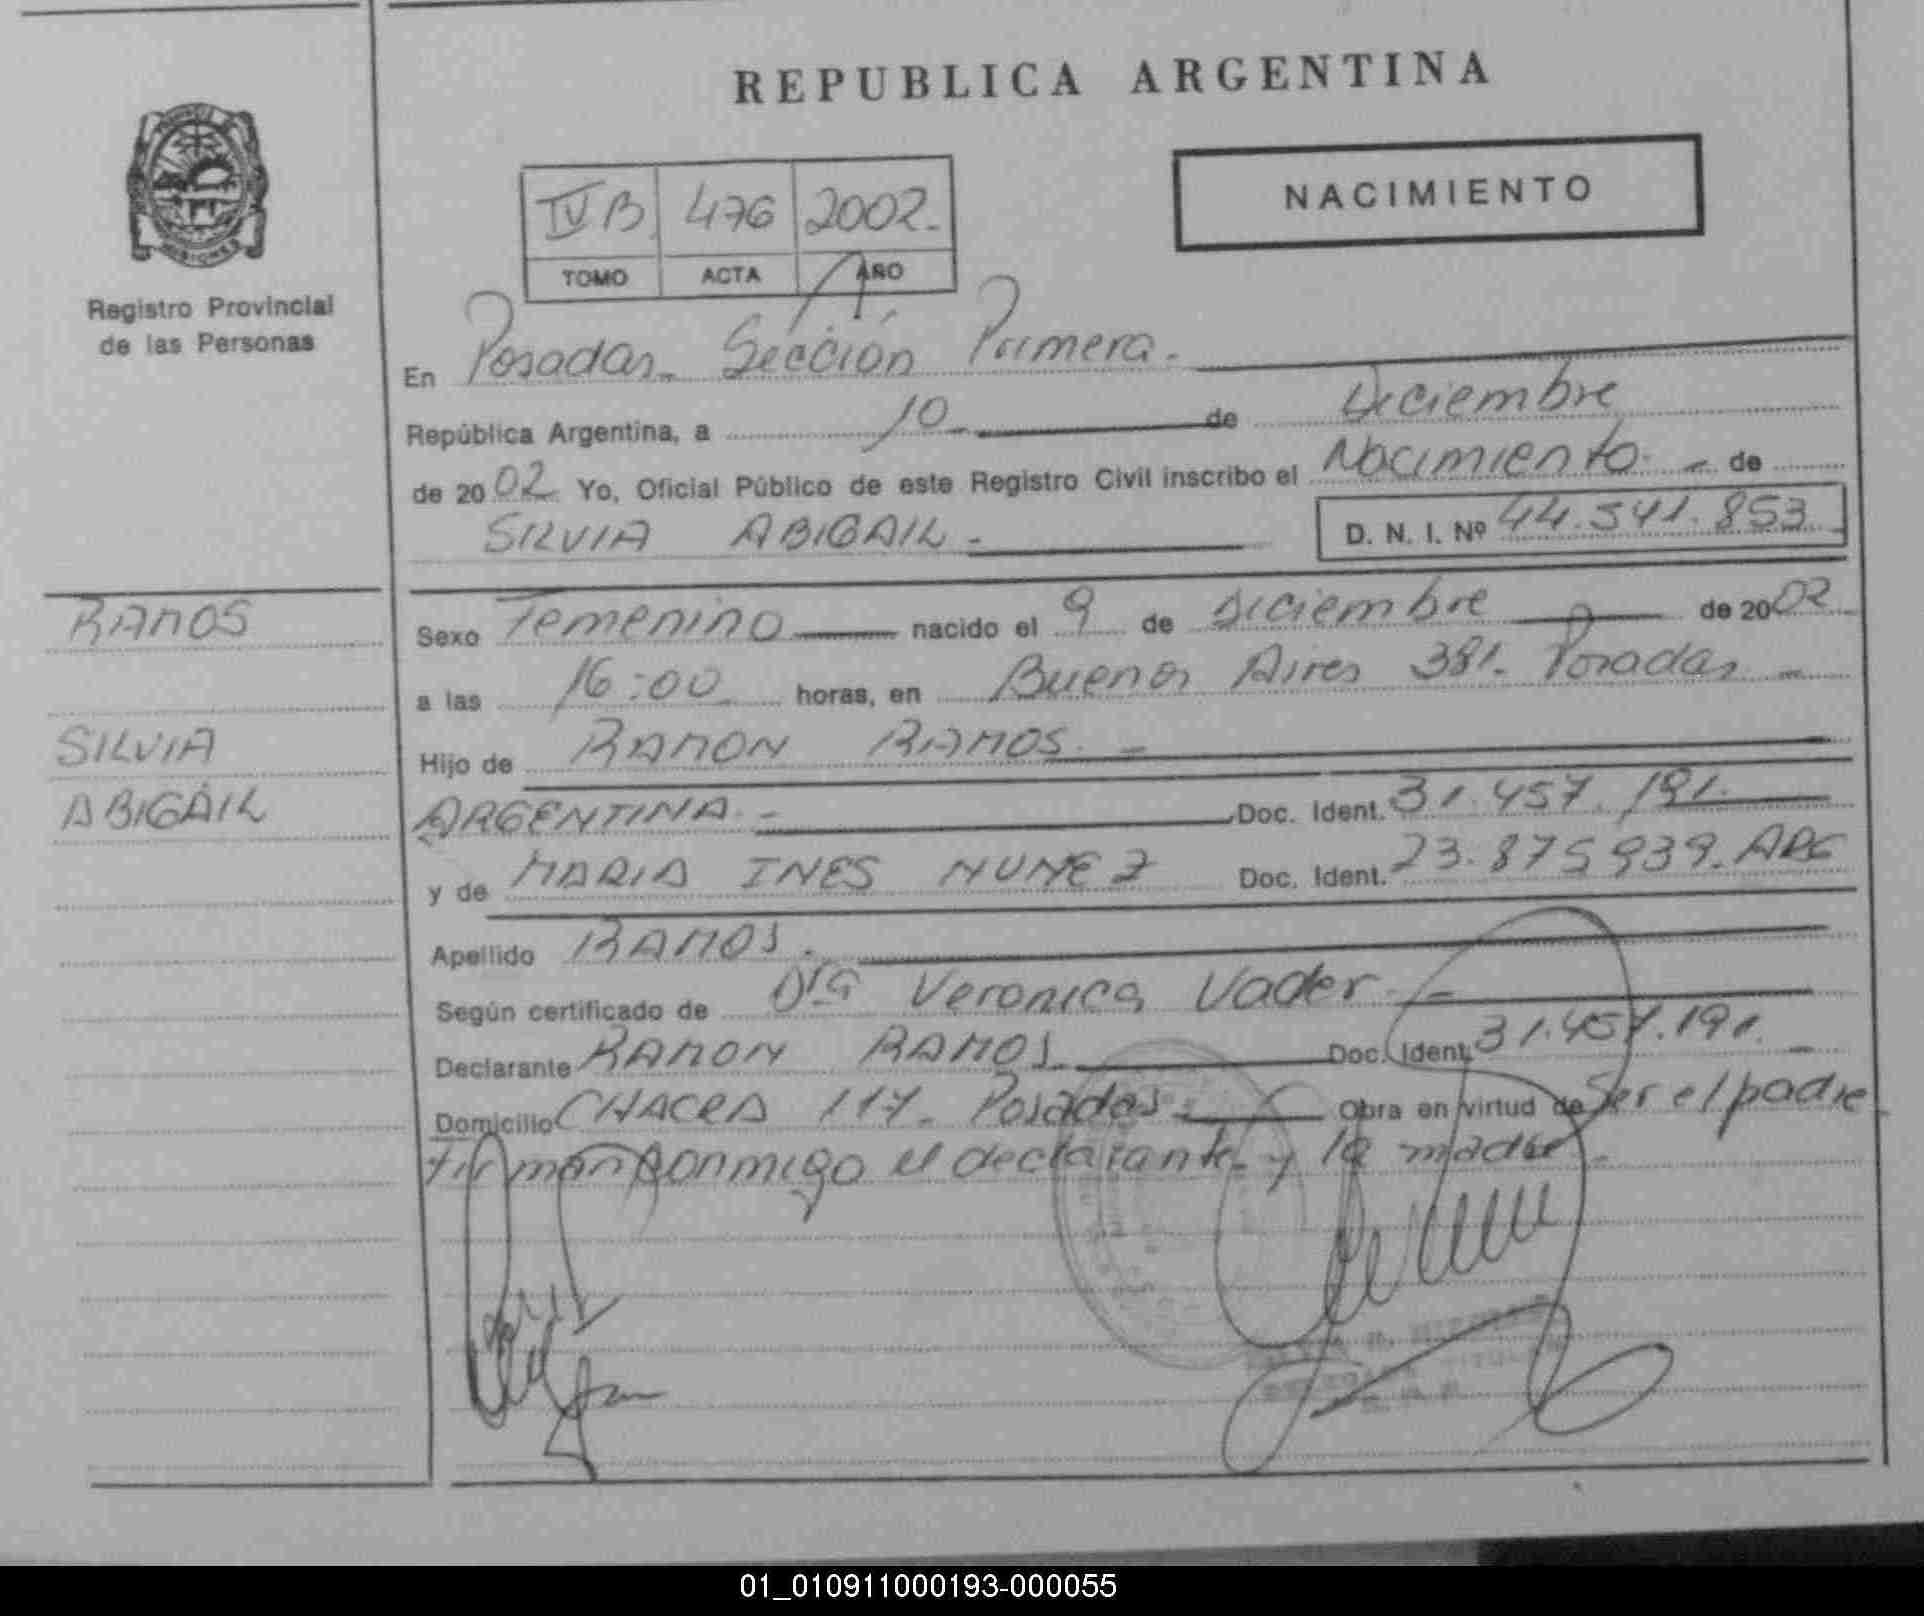 REPUBLICA ARGENTINA
NACIMIENTO
IV B. 476 2002.-
TOMO ACTA AÑO
Registro Provincial
de las Personas
En Posadas. Sección Primera.-
República Argentina, a 10 de Diciembre
de 2002 Yo, Oficial Público de este Registro Civil inscribo el Nacimiento - de
SILVIA ABIGAIL.-
D. N. I. Nº 44.541.853
RAMOS
SILVIA
ABIGAIL
Sexo Femenino nacido el 9 de Diciembre de 2002
a las 16:00 horas, en Buenos Aires 381- Posadas -
Hijo de RAMON RAMOS.-
ARGENTINA.- Doc. Ident. 31.457.191.
y de MARIA INES NUNEZ Doc. Ident. 23.875939. ARG
Apellido RAMOS.
Según certificado de Dra Veronica Vader -
Declarante RAMON RAMOS Doc. Ident. 31.457.191.
Domicilio CHACRA 117- Posadas.- Obra en virtud de Ser el padre
Firman conmigo el declarante y la madre -
01_010911000193-000055